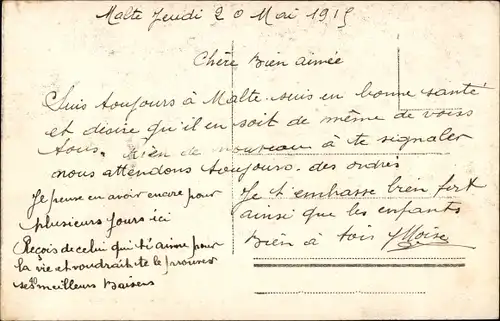 Malte Jeudi 20 Mai 1915
Chère Bien aimée
Suis toujours à Malte. suis en bonne santé
et désire qu'il en soit de même de vous
tous. Rien de nouveau à te signaler
nous attendons toujours des ordres
Je pense en avoir encore pour
plusieurs jours ici
Reçois de celui qui t'aime pour
la vie et voudrait te le prouver
ses meilleurs Baisers
Je t'embrasse bien fort
ainsi que les enfants
Bien à toi Moïse